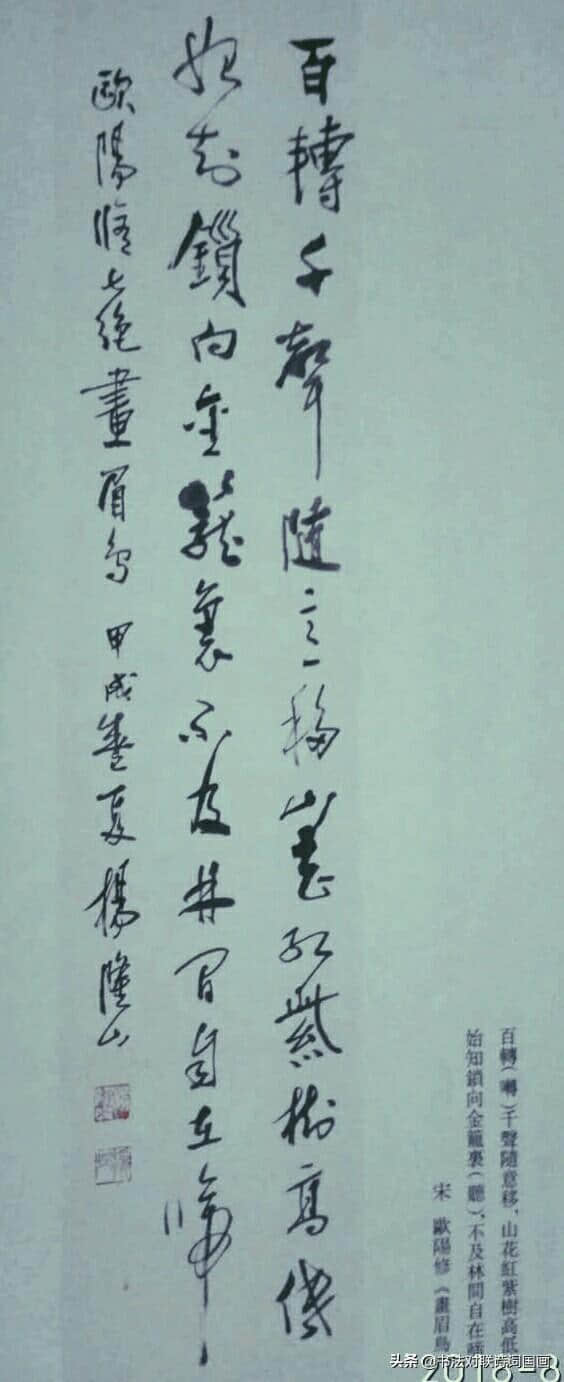 百轉千聲隨意移山花紅紫樹高低
始知鎖向金籠裏不及林間自在啼
歐陽脩七絕畫眉鳥 甲戌盛夏楊隆山
百轉(囀)千聲隨意移,山花紅紫樹高低
始知鎖向金籠裏(聽),不及林間自在啼
宋 歐陽修《畫眉鳥
头条 @书法对联诗词国画
2018-8